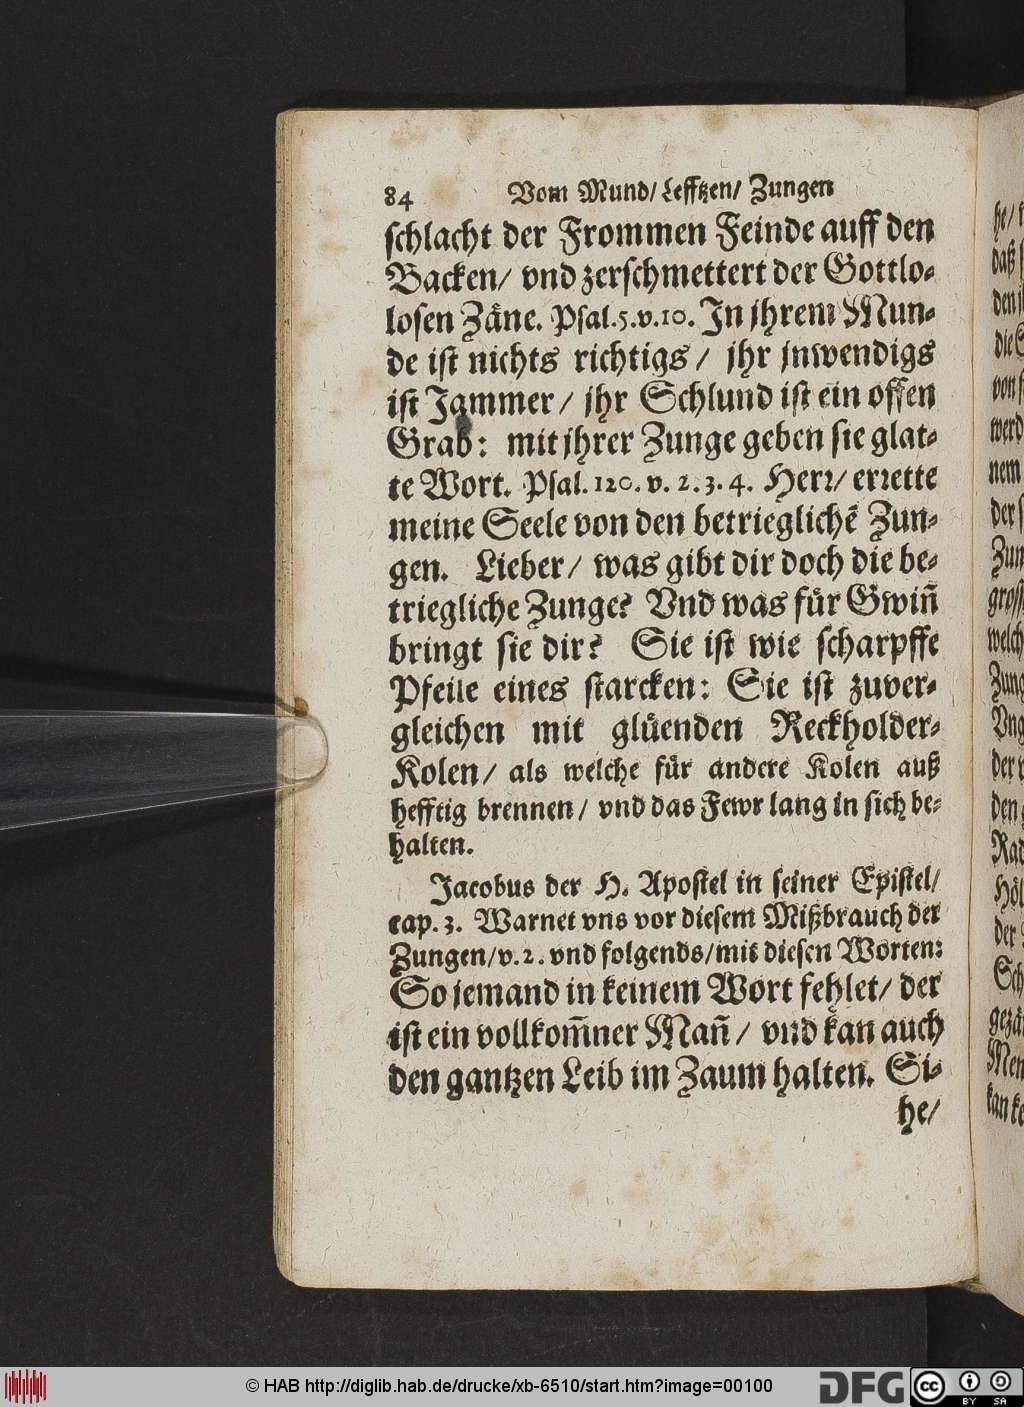 84 Vom Mund/ Lefftzen/ Zungen
schlacht der Frommen Feinde auff den
Backen/ vnd zerschmettert der Gottlo-
losen Zäne. Psal.5.v.10. In jhrem Mun-
de ist nichts richtigs/ jhr jnwendigs
ist Jammer/ jhr Schlund ist ein offen
Grab: mit jhrer Zunge geben sie glat-
te Wort. Psal.120.v.2.3.4. Herr/ errette
meine Seele von den betrieglichẽ Zun-
gen. Lieber/ was gibt dir doch die be-
triegliche Zunge? Vnd was für Gwiñ
bringt sie dir? Sie ist wie scharpffe
Pfeile eines starcken: Sie ist zuver-
gleichen mit glüenden Reckholder-
Kolen/ als welche für andere Kolen auß
hefftig brennen/ vnd das Fewr lang in sich be-
halten.
Jacobus der H. Apostel in seiner Epistel/
cap.3. Warnet vns vor diesem Mißbrauch der
Zungen/v.2.vnd folgends/mit diesen Worten:
So jemand in keinem Wort fehlet/ der
ist ein vollkom̃ner Mañ/ vnd kan auch
den gantzen Leib im Zaum halten. Si-
he/
he/
daß
den
die
von
werd
nem
der
Zun
gross
welch
Zung
Vng
der
den
Rad
Höl
der
Sch
gezä
Men
kan
© HAB http://diglib.hab.de/drucke/xb-6510/start.htm?image=00100
DFG
cc BY SA